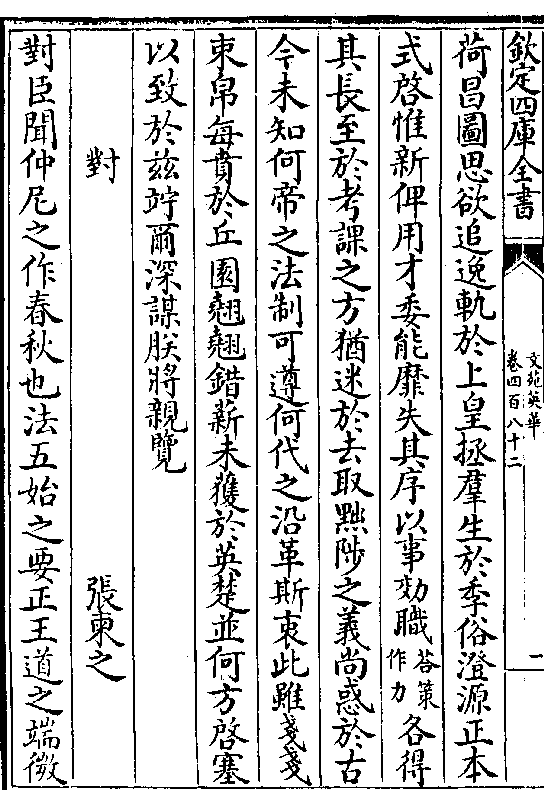 欽定四庫全書
文苑英華
卷四百八十二
一
荷昌圖思欲追逸軌於上皇拯羣生於季俗澄源正本
式啓惟新俾用才委能靡失其序以事効職答策作力各得
其長至於考課之方猶迷於去取黜陟之義尚惑於古
今未知何帝之法制可遵何代之沿革斯衷此雖戔戔
束帛每賁於丘園翹翹錯薪未獲於英楚並何方啓塞
以致於兹竚爾深謀朕將親覽
對
張柬之
對臣聞仲尼之作春秋也法五始之要正王道之端微